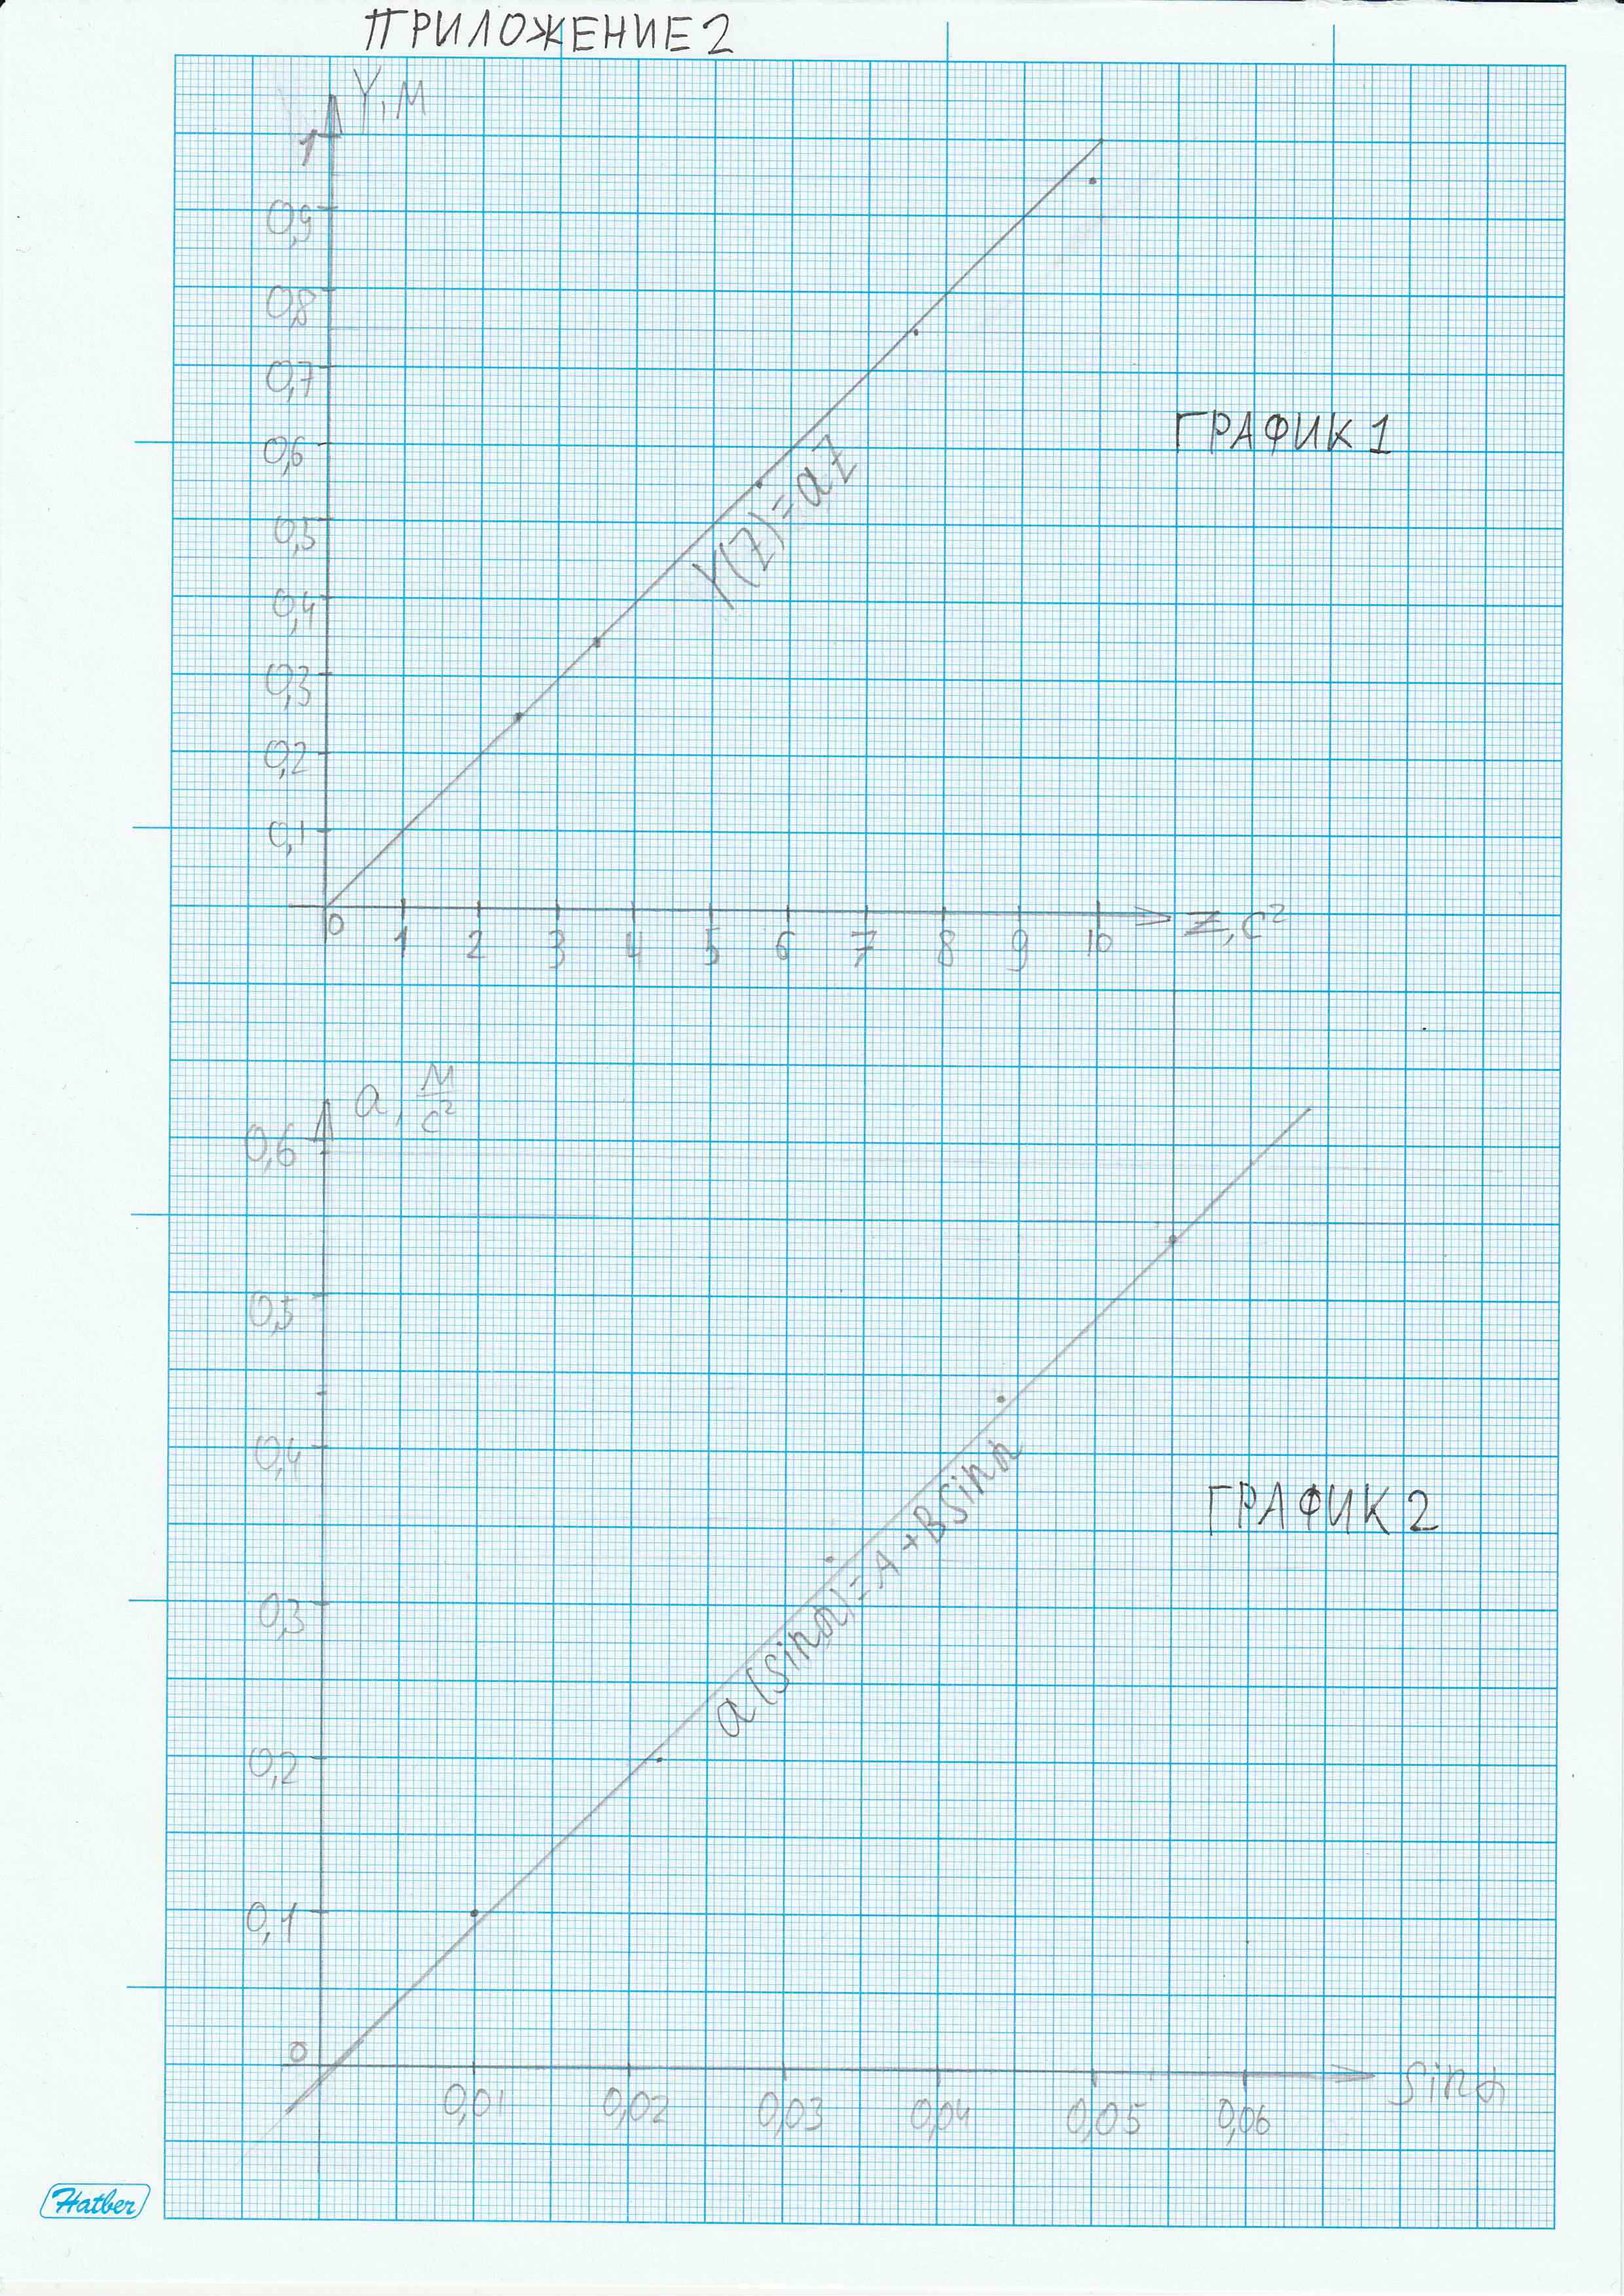 ПРИЛОЖЕНИЕ 2
Y, м
1
0,9
0,8
0,7
0,6
0,5
0,4
0,3
0,2
0,1
0
1 2 3 4 5 6 7 8 9 10
Z, с²
Y(Z)=aZ
ГРАФИК 1
a, м/с²
0,6
0,5
0,4
0,3
0,2
0,1
0
0,01 0,02 0,03 0,04 0,05 0,06
sinα
a(sinα)=A+Bsinα
ГРАФИК 2
Hatber